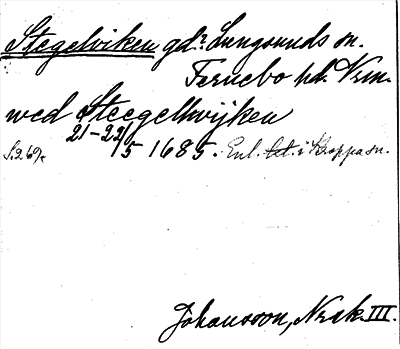 Stegelviken gd? Lungsunds sn.
Fernebo hd. Vrm.
wed Steegelhwijken
21-22/5 1685. Enl. bet. i Kroppa sn.
S. 269.
Johansson, Nrak. III.